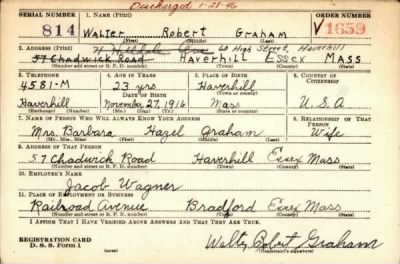 Discharged 1-28-46
SERIAL NUMBER 1. NAME (Print) ORDER NUMBER
814 Walter Robert Graham V 1659
(First) (Middle) (Last)
2. ADDRESS (Print) 60 High Street, Haverhill
57 Chadwick Road Haverhill Essex Mass
(Number and street or R. F. D. number) (Town) (County) (State)
3. TELEPHONE 4. AGE IN YEARS 5. PLACE OF BIRTH 6. COUNTRY OF CITIZENSHIP
4581-M 23 yrs Haverhill
DATE OF BIRTH (Town or county)
Haverhill November 27, 1916 Mass U.S.A
(Exchange) (Number) (Mo.) (Day) (Yr.) (State or country)
7. NAME OF PERSON WHO WILL ALWAYS KNOW YOUR ADDRESS 8. RELATIONSHIP OF THAT PERSON
Mrs. Barbara Hazel Graham Wife
(Mr., Mrs., Miss) (First) (Middle) (Last)
9. ADDRESS OF THAT PERSON
57 Chadwick Road Haverhill Essex Mass
(Number and street or R. F. D. number) (Town) (County) (State)
10. EMPLOYER'S NAME
Jacob Wagner
11. PLACE OF EMPLOYMENT OR BUSINESS
Railroad Avenue Bradford Essex Mass
(Number and street or R. F. D. number) (Town) (County) (State)
I AFFIRM THAT I HAVE VERIFIED ABOVE ANSWERS AND THAT THEY ARE TRUE.
REGISTRATION CARD
D. S. S. Form 1 Walter Robert Graham